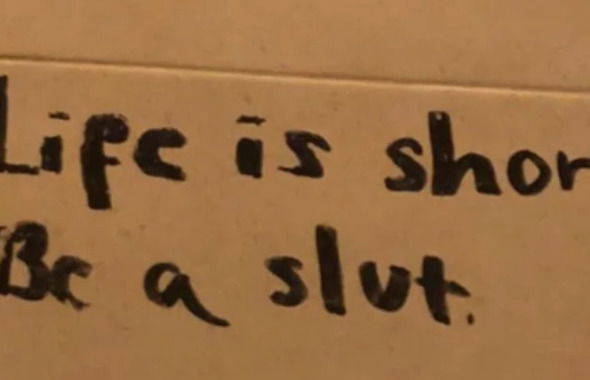 Life is shor
Be a slut.